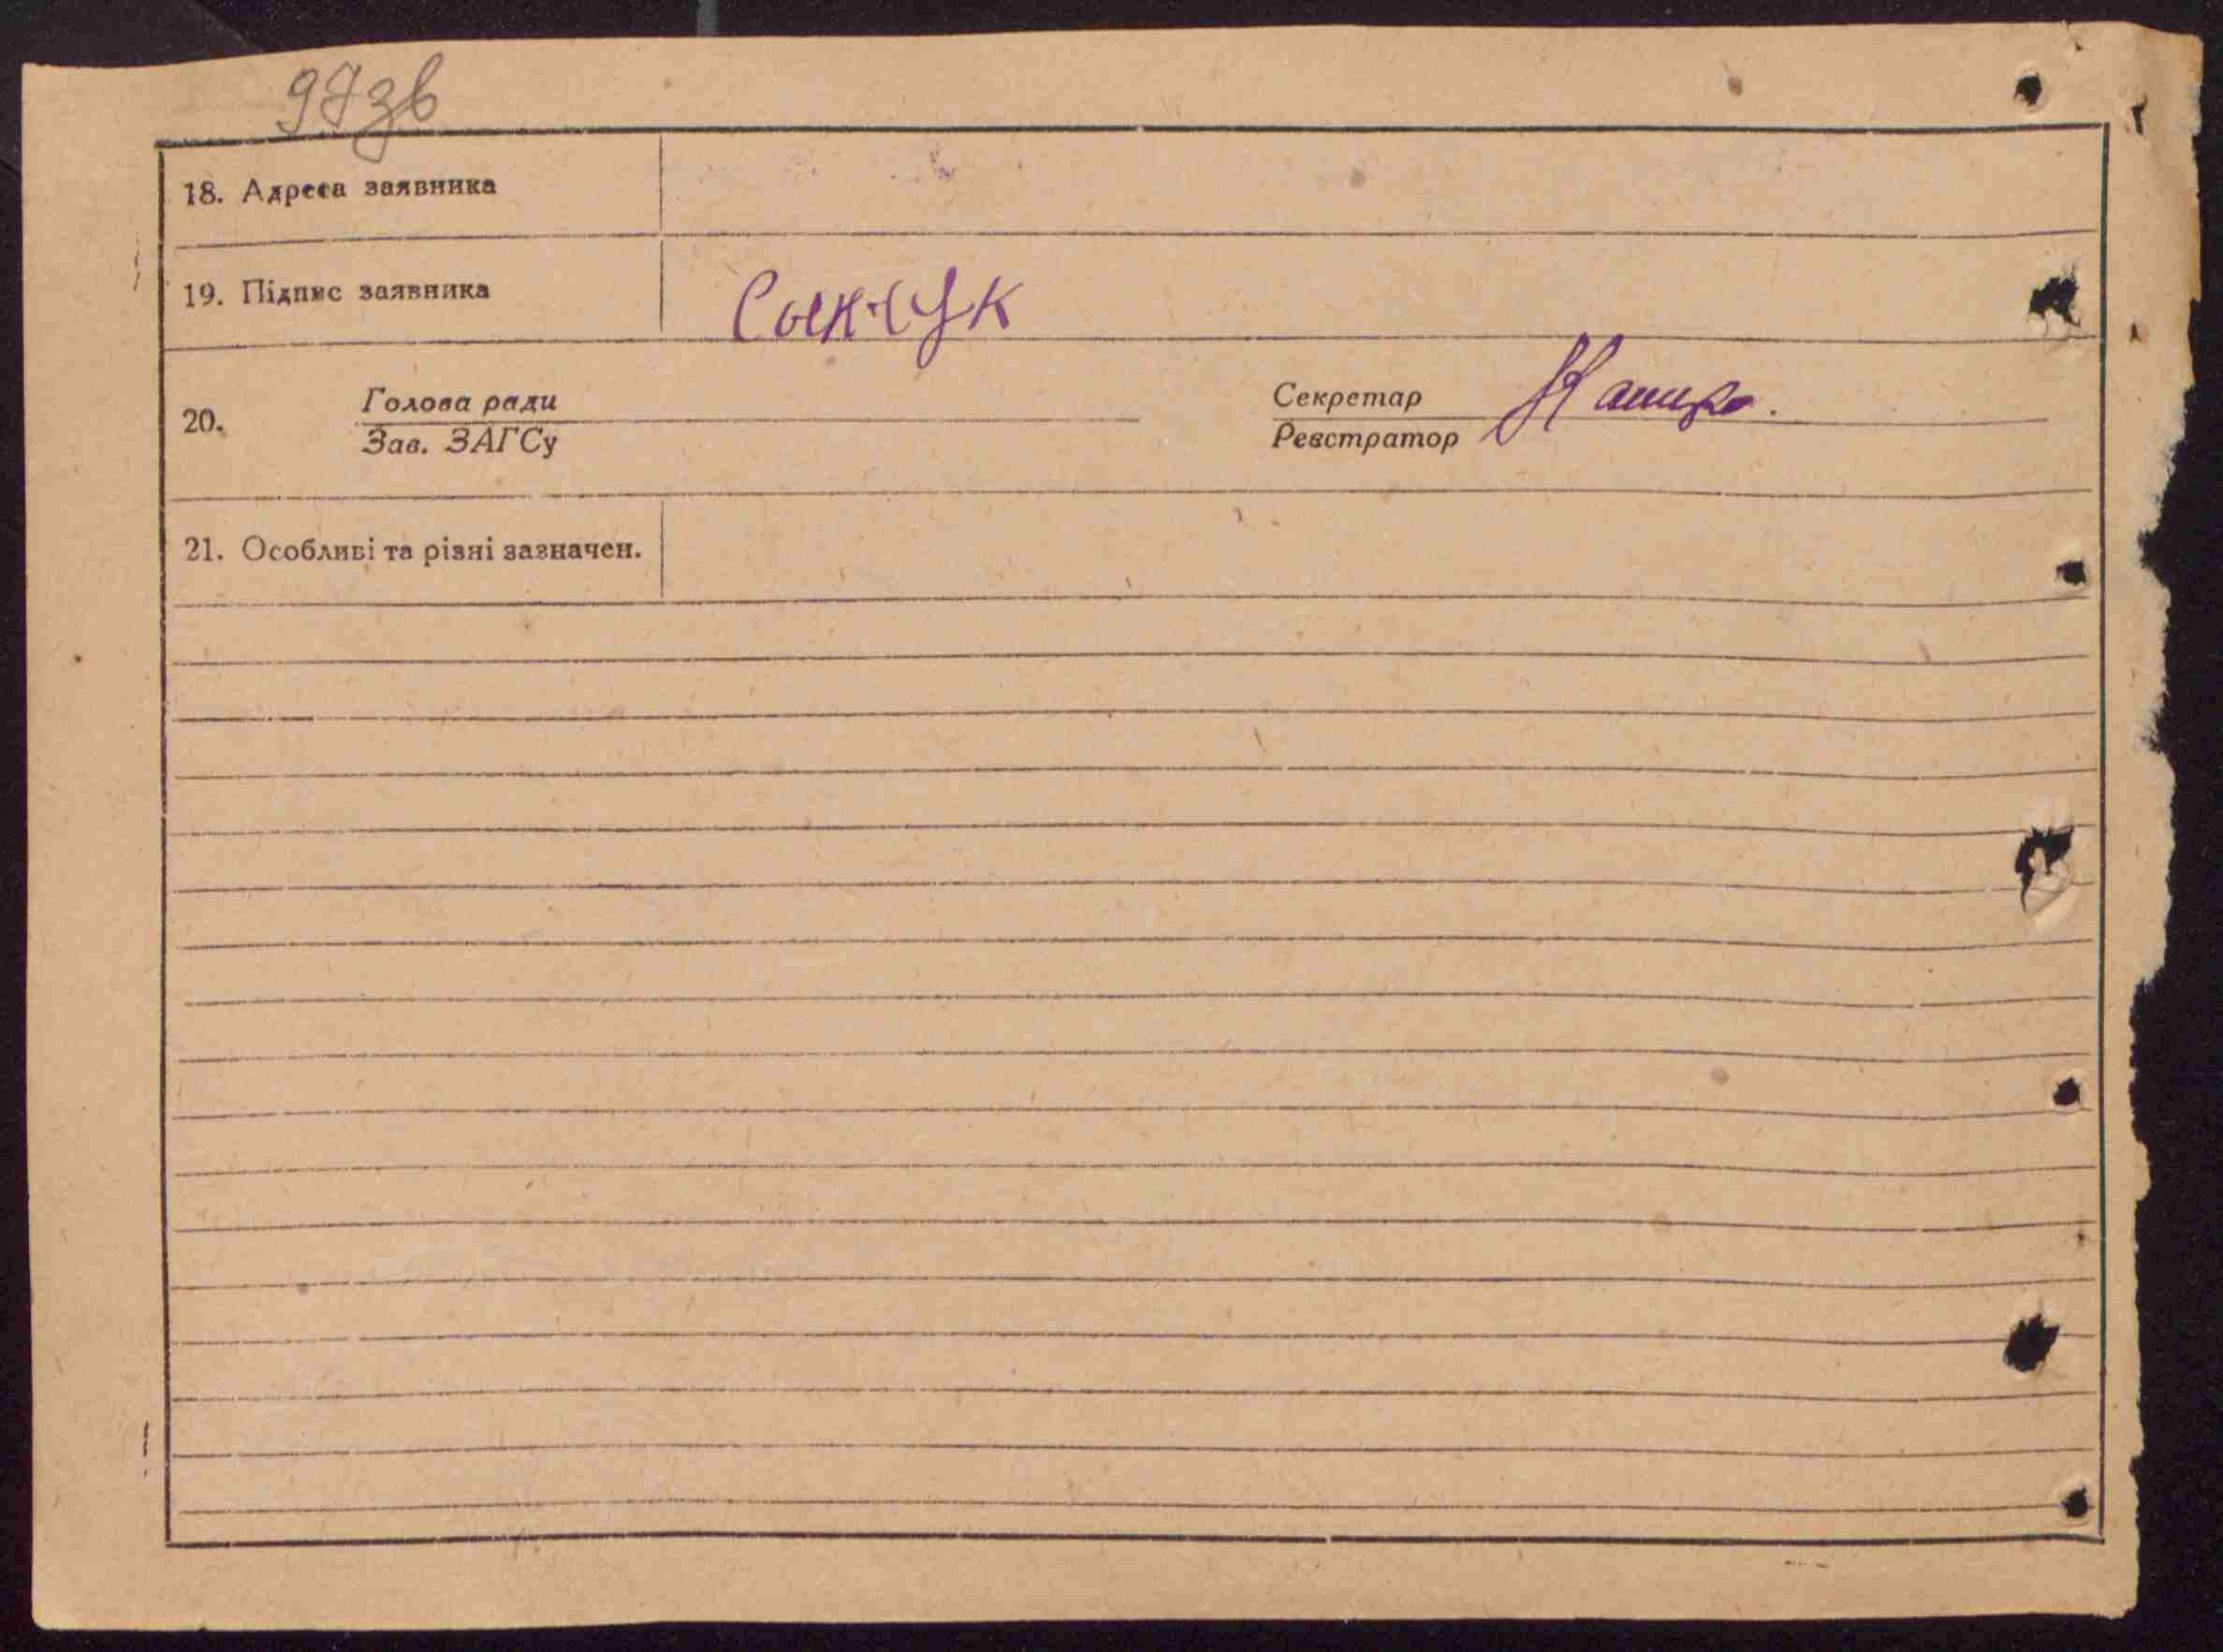 97зв
18. Адреса заявника
19. Підпис заявника
20. Голова ради
Зав. ЗАГСу
Секретар
Реєстратор
21. Особливі та різні зазначен.